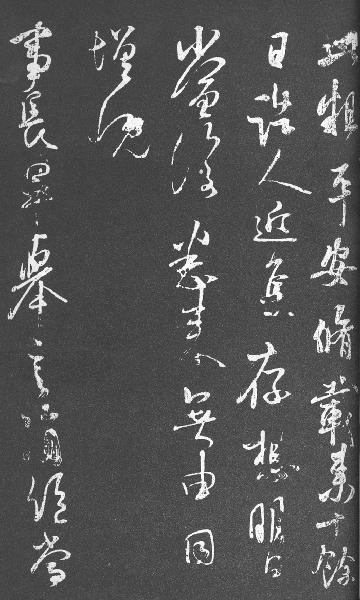 此粗平安脩載來十餘
日諸人近集存想明日
當復悉來無由同
增慨
長